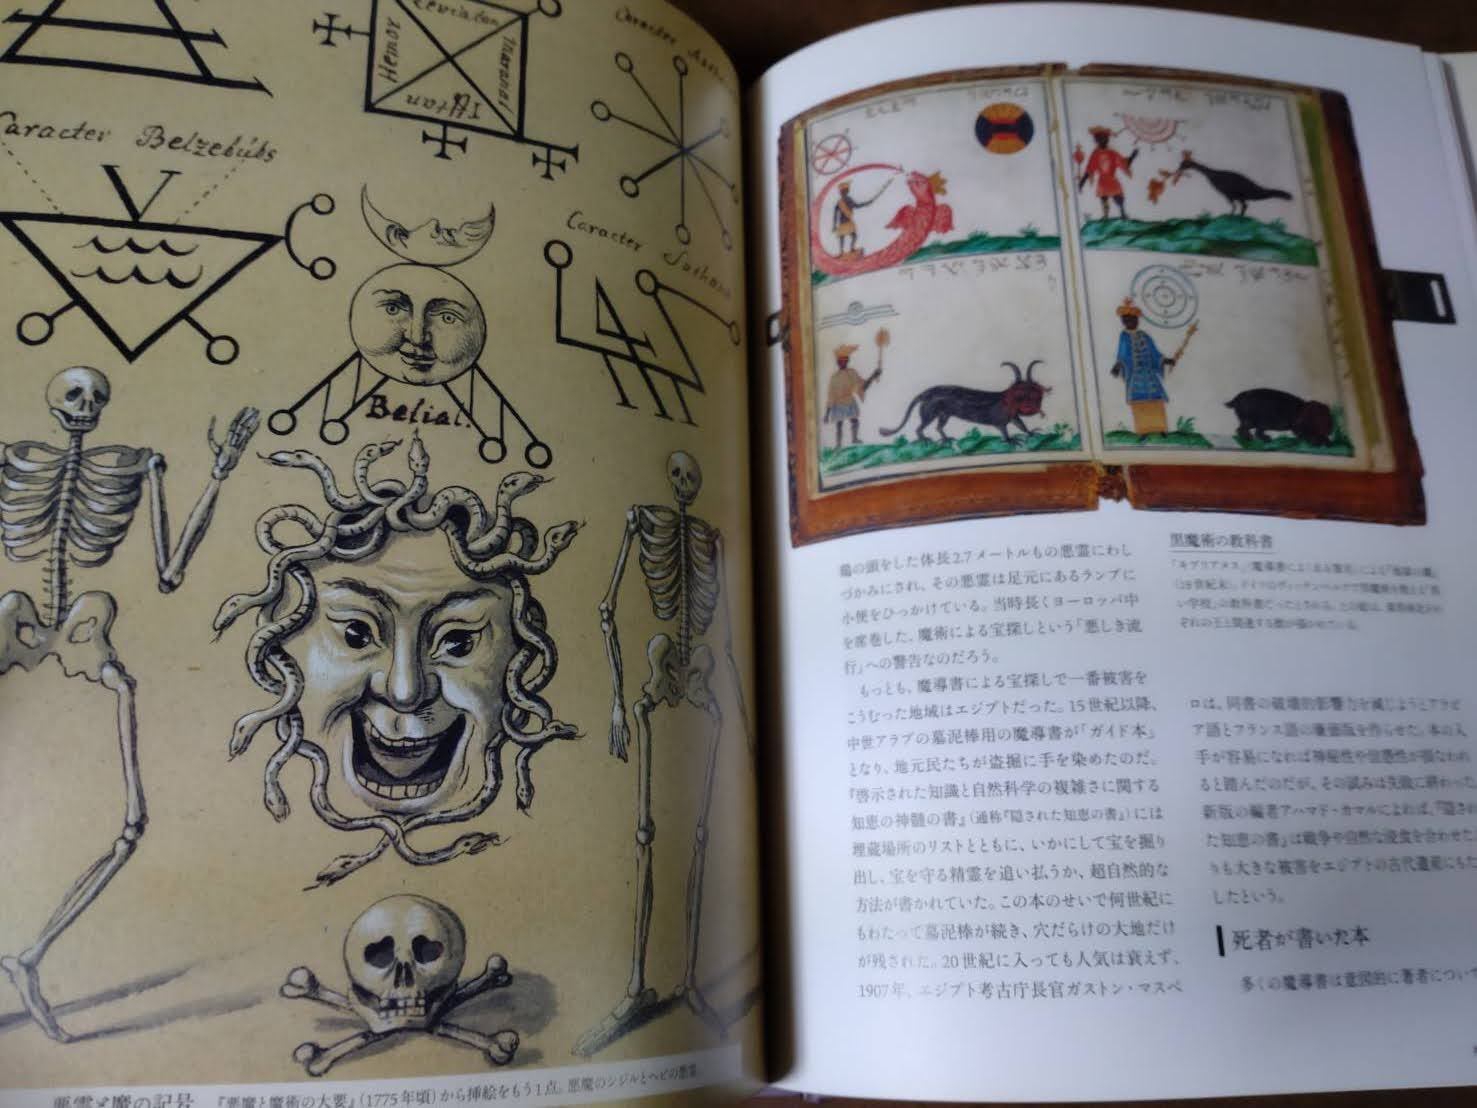 Leviatan
Hemoy
Caracter Belzebûbs
Caracter
Belial.
Caracter
悪霊と魔の記号 『悪魔と魔術の大要』(1775年頃)から挿絵をもう1点。悪魔のシジルとヘビの悪霊。
鶏の頭をした体長2.7メートルもの悪霊にわし
づかみにされ、その悪霊は足元にあるランプに
小便をひっかけている。当時長くヨーロッパ中
を席巻した、魔術による宝探しという「悪しき流
行」への警告なのだろう。
もっとも、魔導書による宝探しで一番被害を
こうむった地域はエジプトだった。15世紀以降、
中世アラブの墓泥棒用の魔導書が「ガイド本」
となり、地元民たちが盗掘に手を染めたのだ。
『啓示された知識と自然科学の複雑さに関する
知恵の神髄の書』(通称『隠された知恵の書』)には
埋蔵場所のリストとともに、いかにして宝を掘り
出し、宝を守る精霊を追い払うか、超自然的な
方法が書かれていた。この本のせいで何世紀に
もわたって墓泥棒が続き、穴だらけの大地だけ
が残された。20世紀に入っても人気は衰えず、
1907年、エジプト考古庁長官ガストン・マスペ
黒魔術の教科書
ロは、同書の破壊的影響力を減じようとアラビ
ア語とフランス語の廉価版を作らせた。本の入
手が容易になれば神秘性や信憑性が損なわれ
ると踏んだのだが、その試みは失敗に終わった。
新版の編者アハマド・カマルによれば、『隠され
た知恵の書』は戦争や自然な浸食を合わせた
りも大きな被害をエジプトの古代遺産にもた
したという。
死者が書いた本
多くの魔導書は意図的に著者について